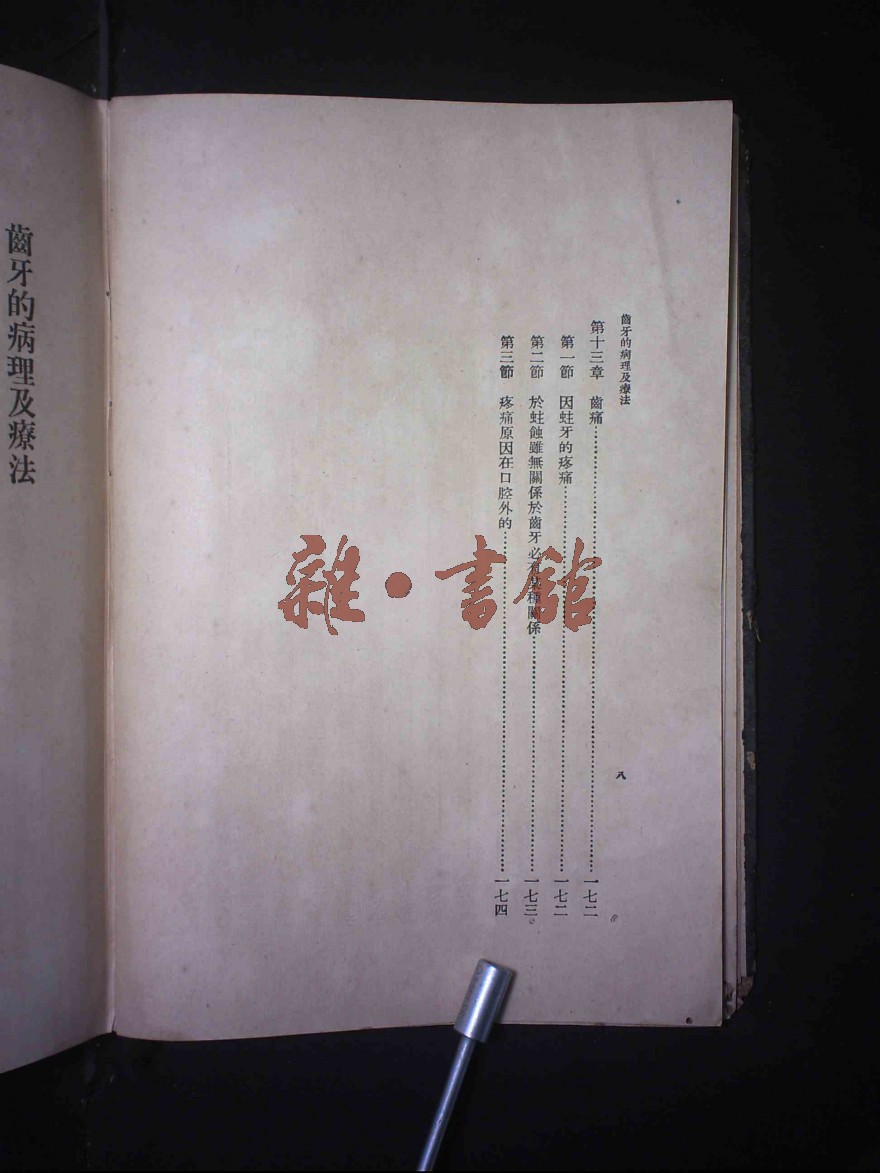 齒牙的病理及療法
八
第十三章 齒痛⋯⋯一七二
第一節 因蛀牙的疼痛⋯⋯一七二
第二節 於蛀蝕雖無關係於齒牙必有某種關係⋯⋯一七三
第三節 疼痛原因在口腔外的⋯⋯一七四
雜·書館
齒牙的病理及療法